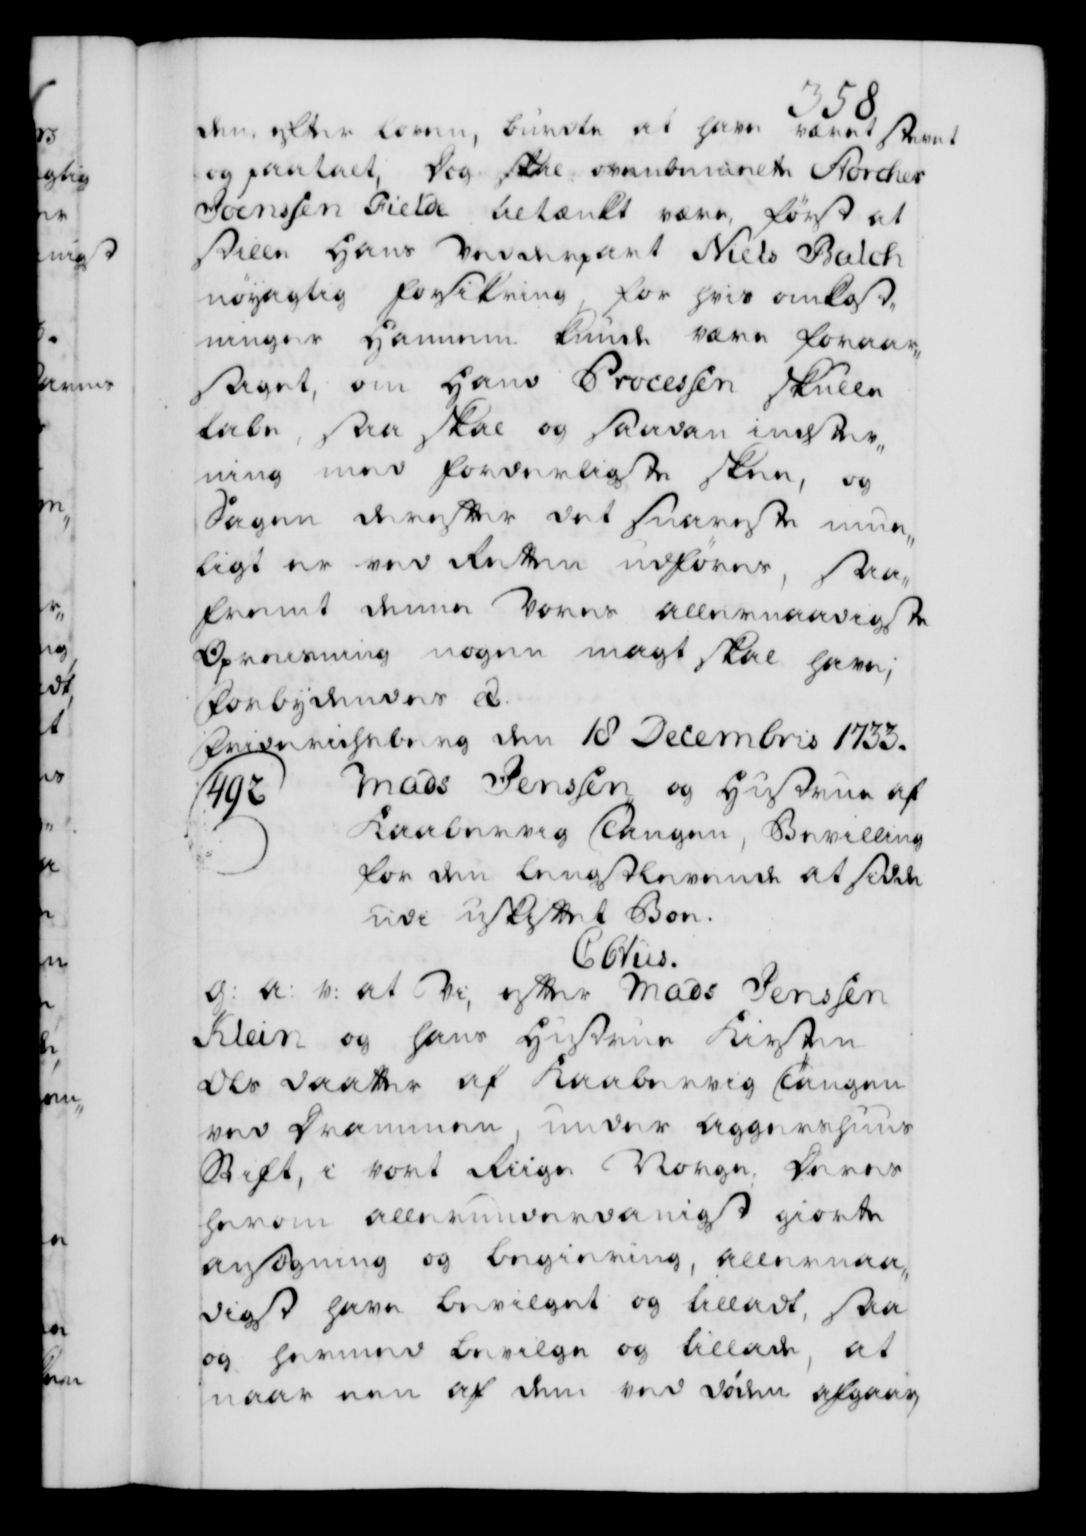 358
den efter Loven, burdte at have været stevnt
og paatalt, Dog skal ovenbemeldte Storcher
Joenssen Fielde betænkt være, først at
stille Hans Vederpart Niels Balch
nöyagtig forsikring, for hvis omkost„
ninger Hannem kunde være foraar„
saget, om Hans Processen skulle
tabe, saa skal og saadan indstev„
ning med forderligste skee, og
Sagen derefter det snareste mue„
ligt er ved Retten udføres, saa„
fremt denne Vores allernaadigste
Opreisning nogen magt skal have;
forbydendes &.
Friderichsberg den 18 Decembris 1733.
492
Mads Jenssen og Hustrue af
Kaabervig Tangen, Bevilling
for den lengstlevende at sidde
udi uskiftet Boe.
C6tus.
G: a: v: at Vi, efter Mads Jenssen
Klein og hans Hustrue Kirsten
Ols daatter af Kaabervig Tangen
ved Drammen, under Aggershuus
Stift, i vort Riige Norge, Deres
herom allerunderdanigst giorte
ansøgning og begiering, allernaa„
digst have bevilget og tilladt, saa
og hermed bevilge og tillade, at
naar een af dem ved døden afgaar,